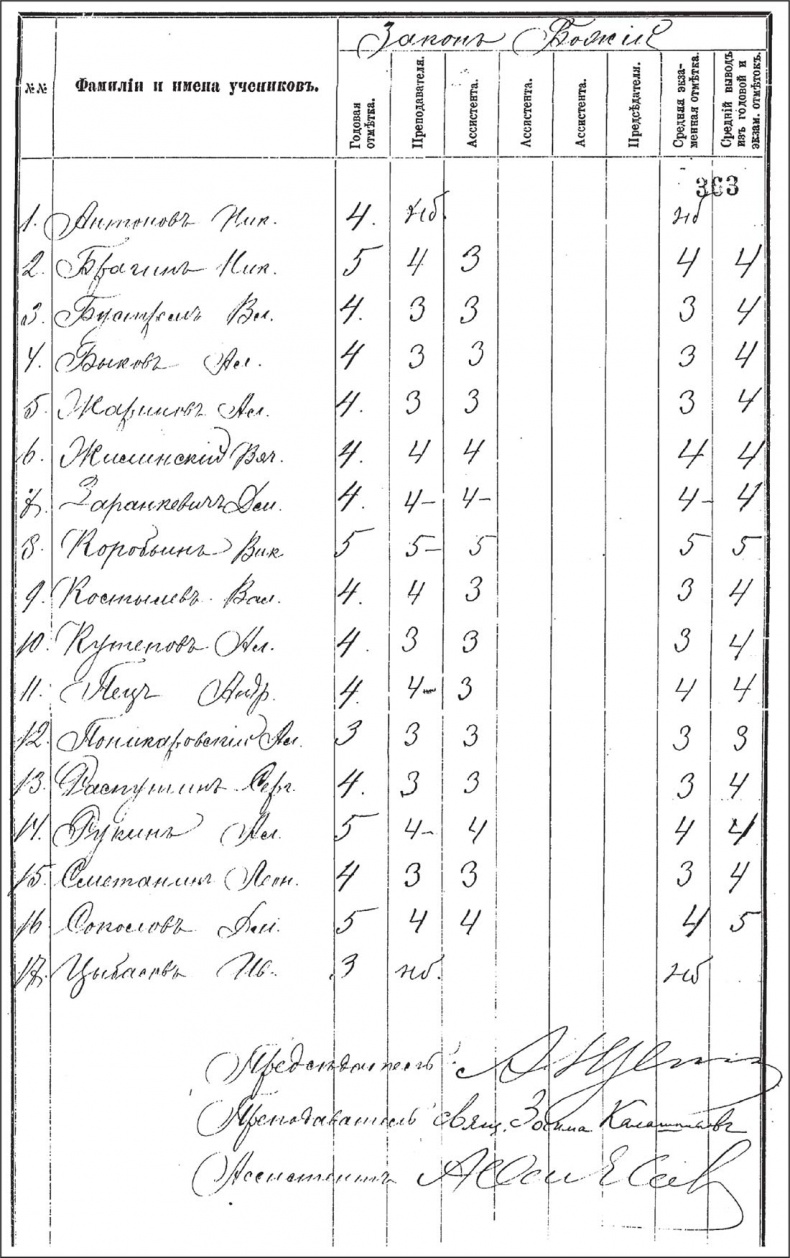 Законъ Божій
№№ Фамиліи и имена учениковъ. Годовая отмѣтка. Преподавателя. Ассистента. Ассистента. Ассистента. Предсѣдателя. Средняя экзаменная отмѣтка. Средній выводъ изъ годовой и экзам. отмѣтокъ.
363
1. Антоновъ Ник. 4. нб. нб
2. Брагинъ Ник. 5 4 3 4 4
3. Бустремъ Вл. 4. 3 3 3 4
4. Быковъ Ал. 4 3 3 3 4
5. Жариковъ Ал. 4. 3 3 3 4
6. Жилинский Вяч. 4. 4 4 4 4
7. Заранкевичъ 4. 4- 4- 4- 4
8. Коробьинъ Вик 5 5- 5 5 5
9. Костылевъ Вал. 4. 4 3 3 4
10. Кутеповъ Ал. 4. 3 3 3 4
11. Пецъ Андр. 4. 4- 3 4 4
12. Поникаровский Ал. 3 3 3 3 3
13. Распутинъ Серг. 4. 3 3 3 4
14. Рукинъ Ал. 5 4- 4 4 4
15. Сметанинъ Леон. 4 3 3 3 4
16. Соколовъ 5 4 4 4 5
17. 3 нб. нб
Предсѣдатель
Преподаватель свящ. Зосима
Ассистентъ